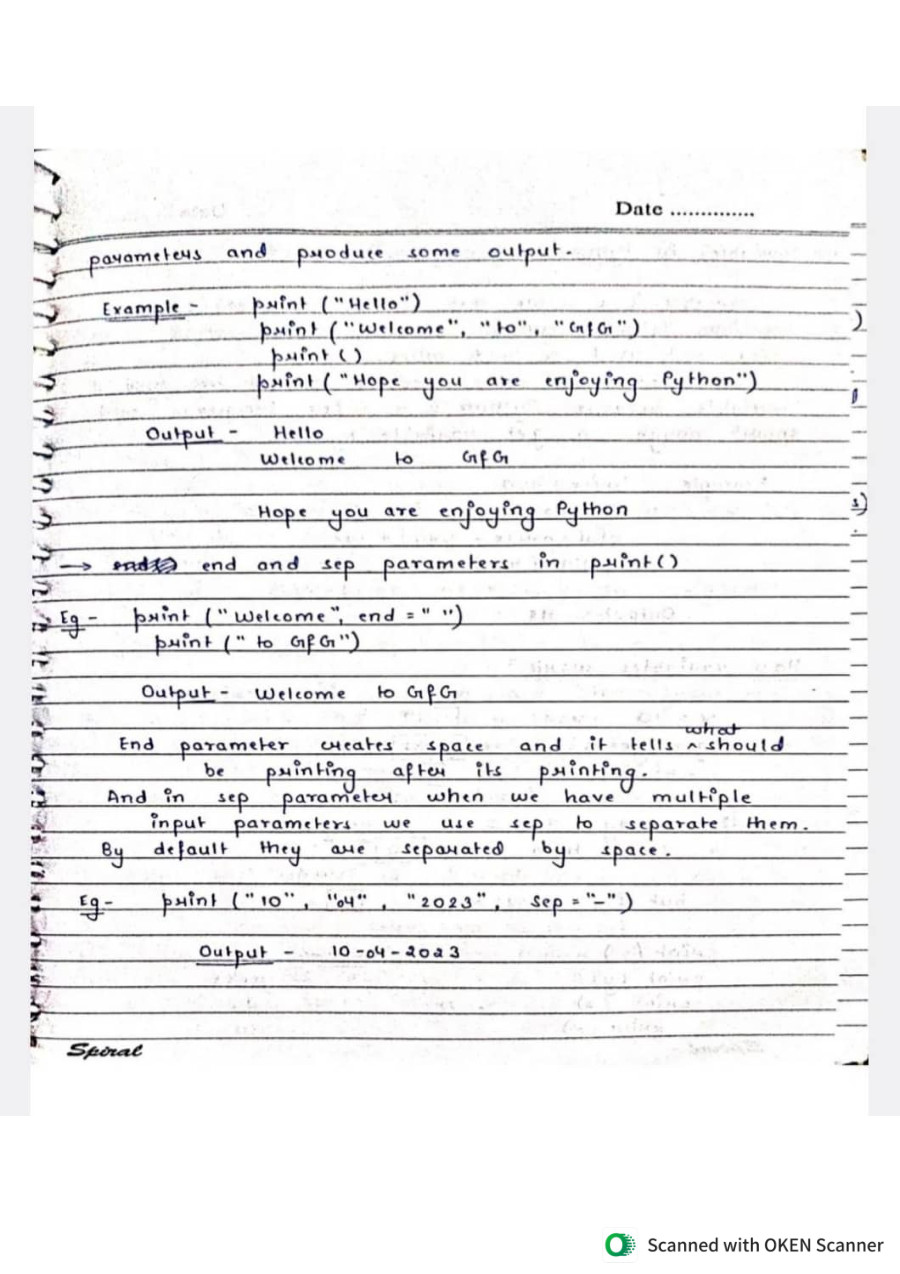 Date ..............
parameters and produce some output.
Example - print ("Hello")
print ("Welcome", "to", "GfG")
print ()
print ("Hope you are enjoying Python")
Output - Hello
Welcome to GfG
Hope you are enjoying Python
→ end and sep parameters in print()
Eg - print ("Welcome", end = " ")
print (" to GfG")
Output - Welcome to GfG
End parameter creates space and it tells ^ what should
be printing after its printing.
And in sep parameter when we have multiple
input parameters we use sep to separate them.
By default they are separated by space.
Eg - print ("10", "04", "2023", sep = "-")
Output - 10-04-2023
Spiral
Scanned with OKEN Scanner